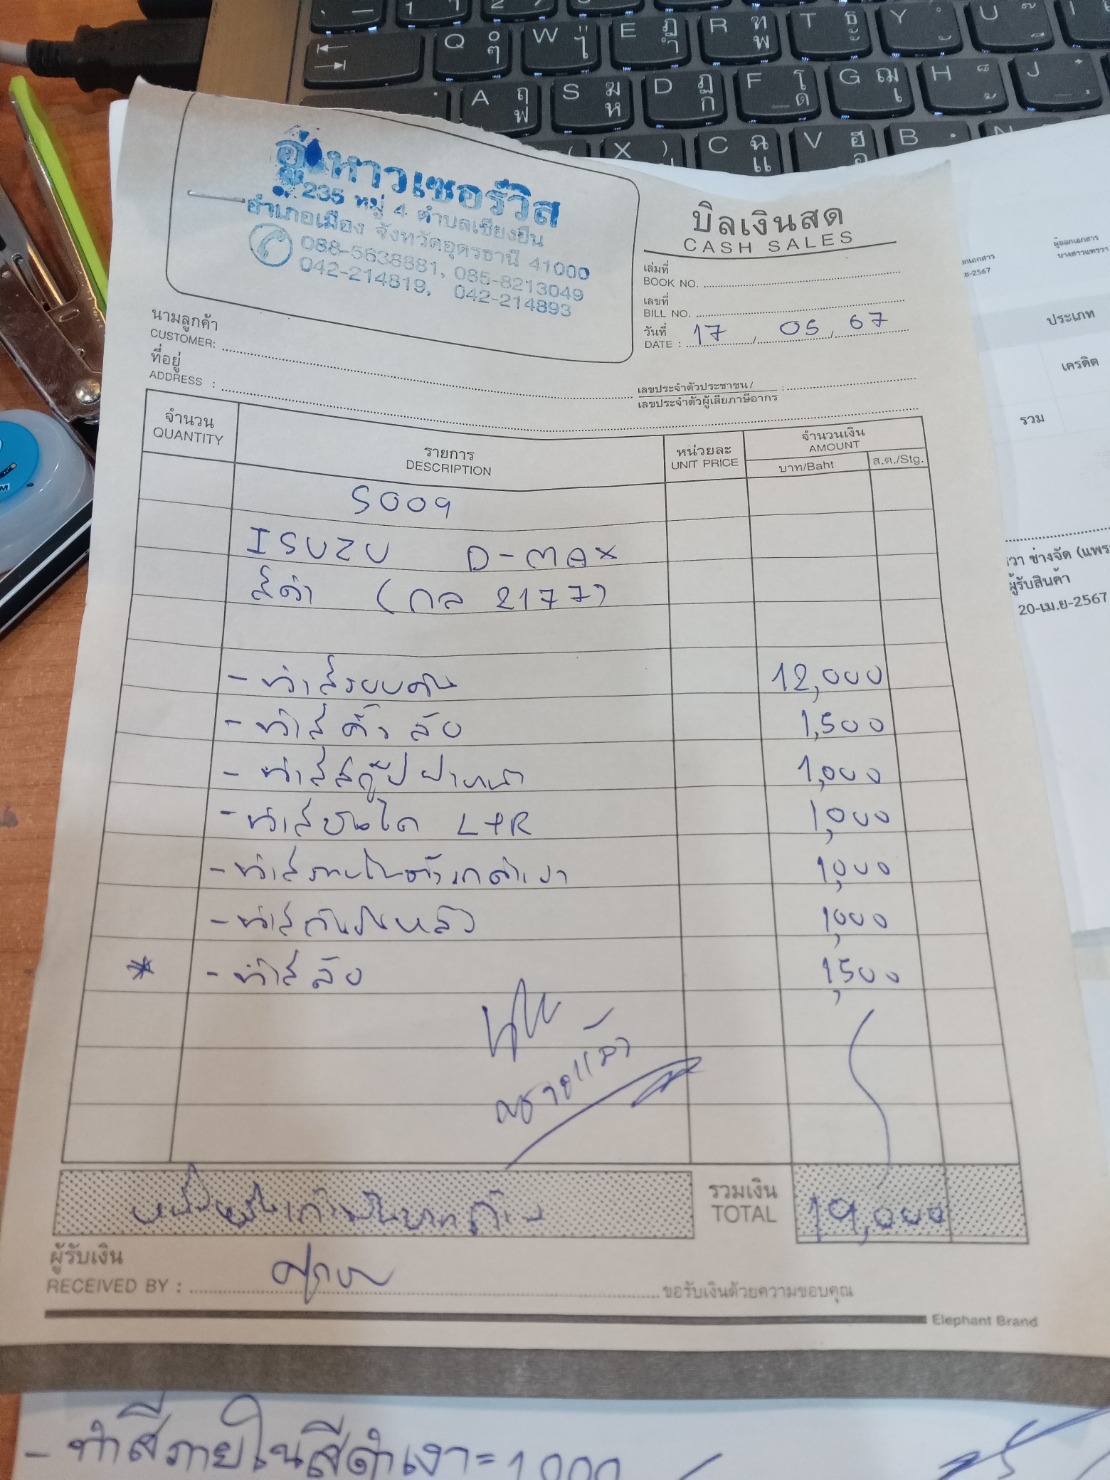 อู่หาวเซอร์วิส
235 หมู่ 4 ตำบลเชียงยืน
อำเภอเมือง จังหวัดอุดรธานี 41000
088-5638881, 085-8213049
042-214819, 042-214893
บิลเงินสด
CASH SALES
เล่มที่
BOOK NO.
เลขที่
BILL NO.
วันที่
DATE : 17 / 05 / 67
นามลูกค้า
CUSTOMER:
ที่อยู่
ADDRESS :
เลขประจำตัวประชาชน/
เลขประจำตัวผู้เสียภาษีอากร
จำนวน
QUANTITY
รายการ
DESCRIPTION
หน่วยละ
UNIT PRICE
จำนวนเงิน
AMOUNT
บาท/Baht
ส.ต./Stg.
S009
ISUZU D-MAX
สีดำ (กล 2177)
- ทำสีรอบคัน 12,000
- ทำสี คิ้ว ล้อ 1,500
- ทำสี สกู๊ป ฝาหน้า 1,000
- ทำสีบันได L+R 1,000
- ทำสีภายใน 1,000
- ทำสีกันชนหลัง 1,000
* - ทำสี ล้อ 1,500
จ่ายแล้ว
หนึ่งหมื่นเก้าพันบาทถ้วน
รวมเงิน
TOTAL
19,000
ผู้รับเงิน
RECEIVED BY :
ขอรับเงินด้วยความขอบคุณ
Elephant Brand
- ทำสีภายในสีดำเงา = 1,000
ผู้ออกเอกสาร
ประเภท
เครดิต
รวม
วา ช่างจัด (แพร
ผู้รับสินค้า
20-เม.ย-2567
Q
W
E
R
T
Y
U
A
S
D
F
G
H
J
X
C
V
B